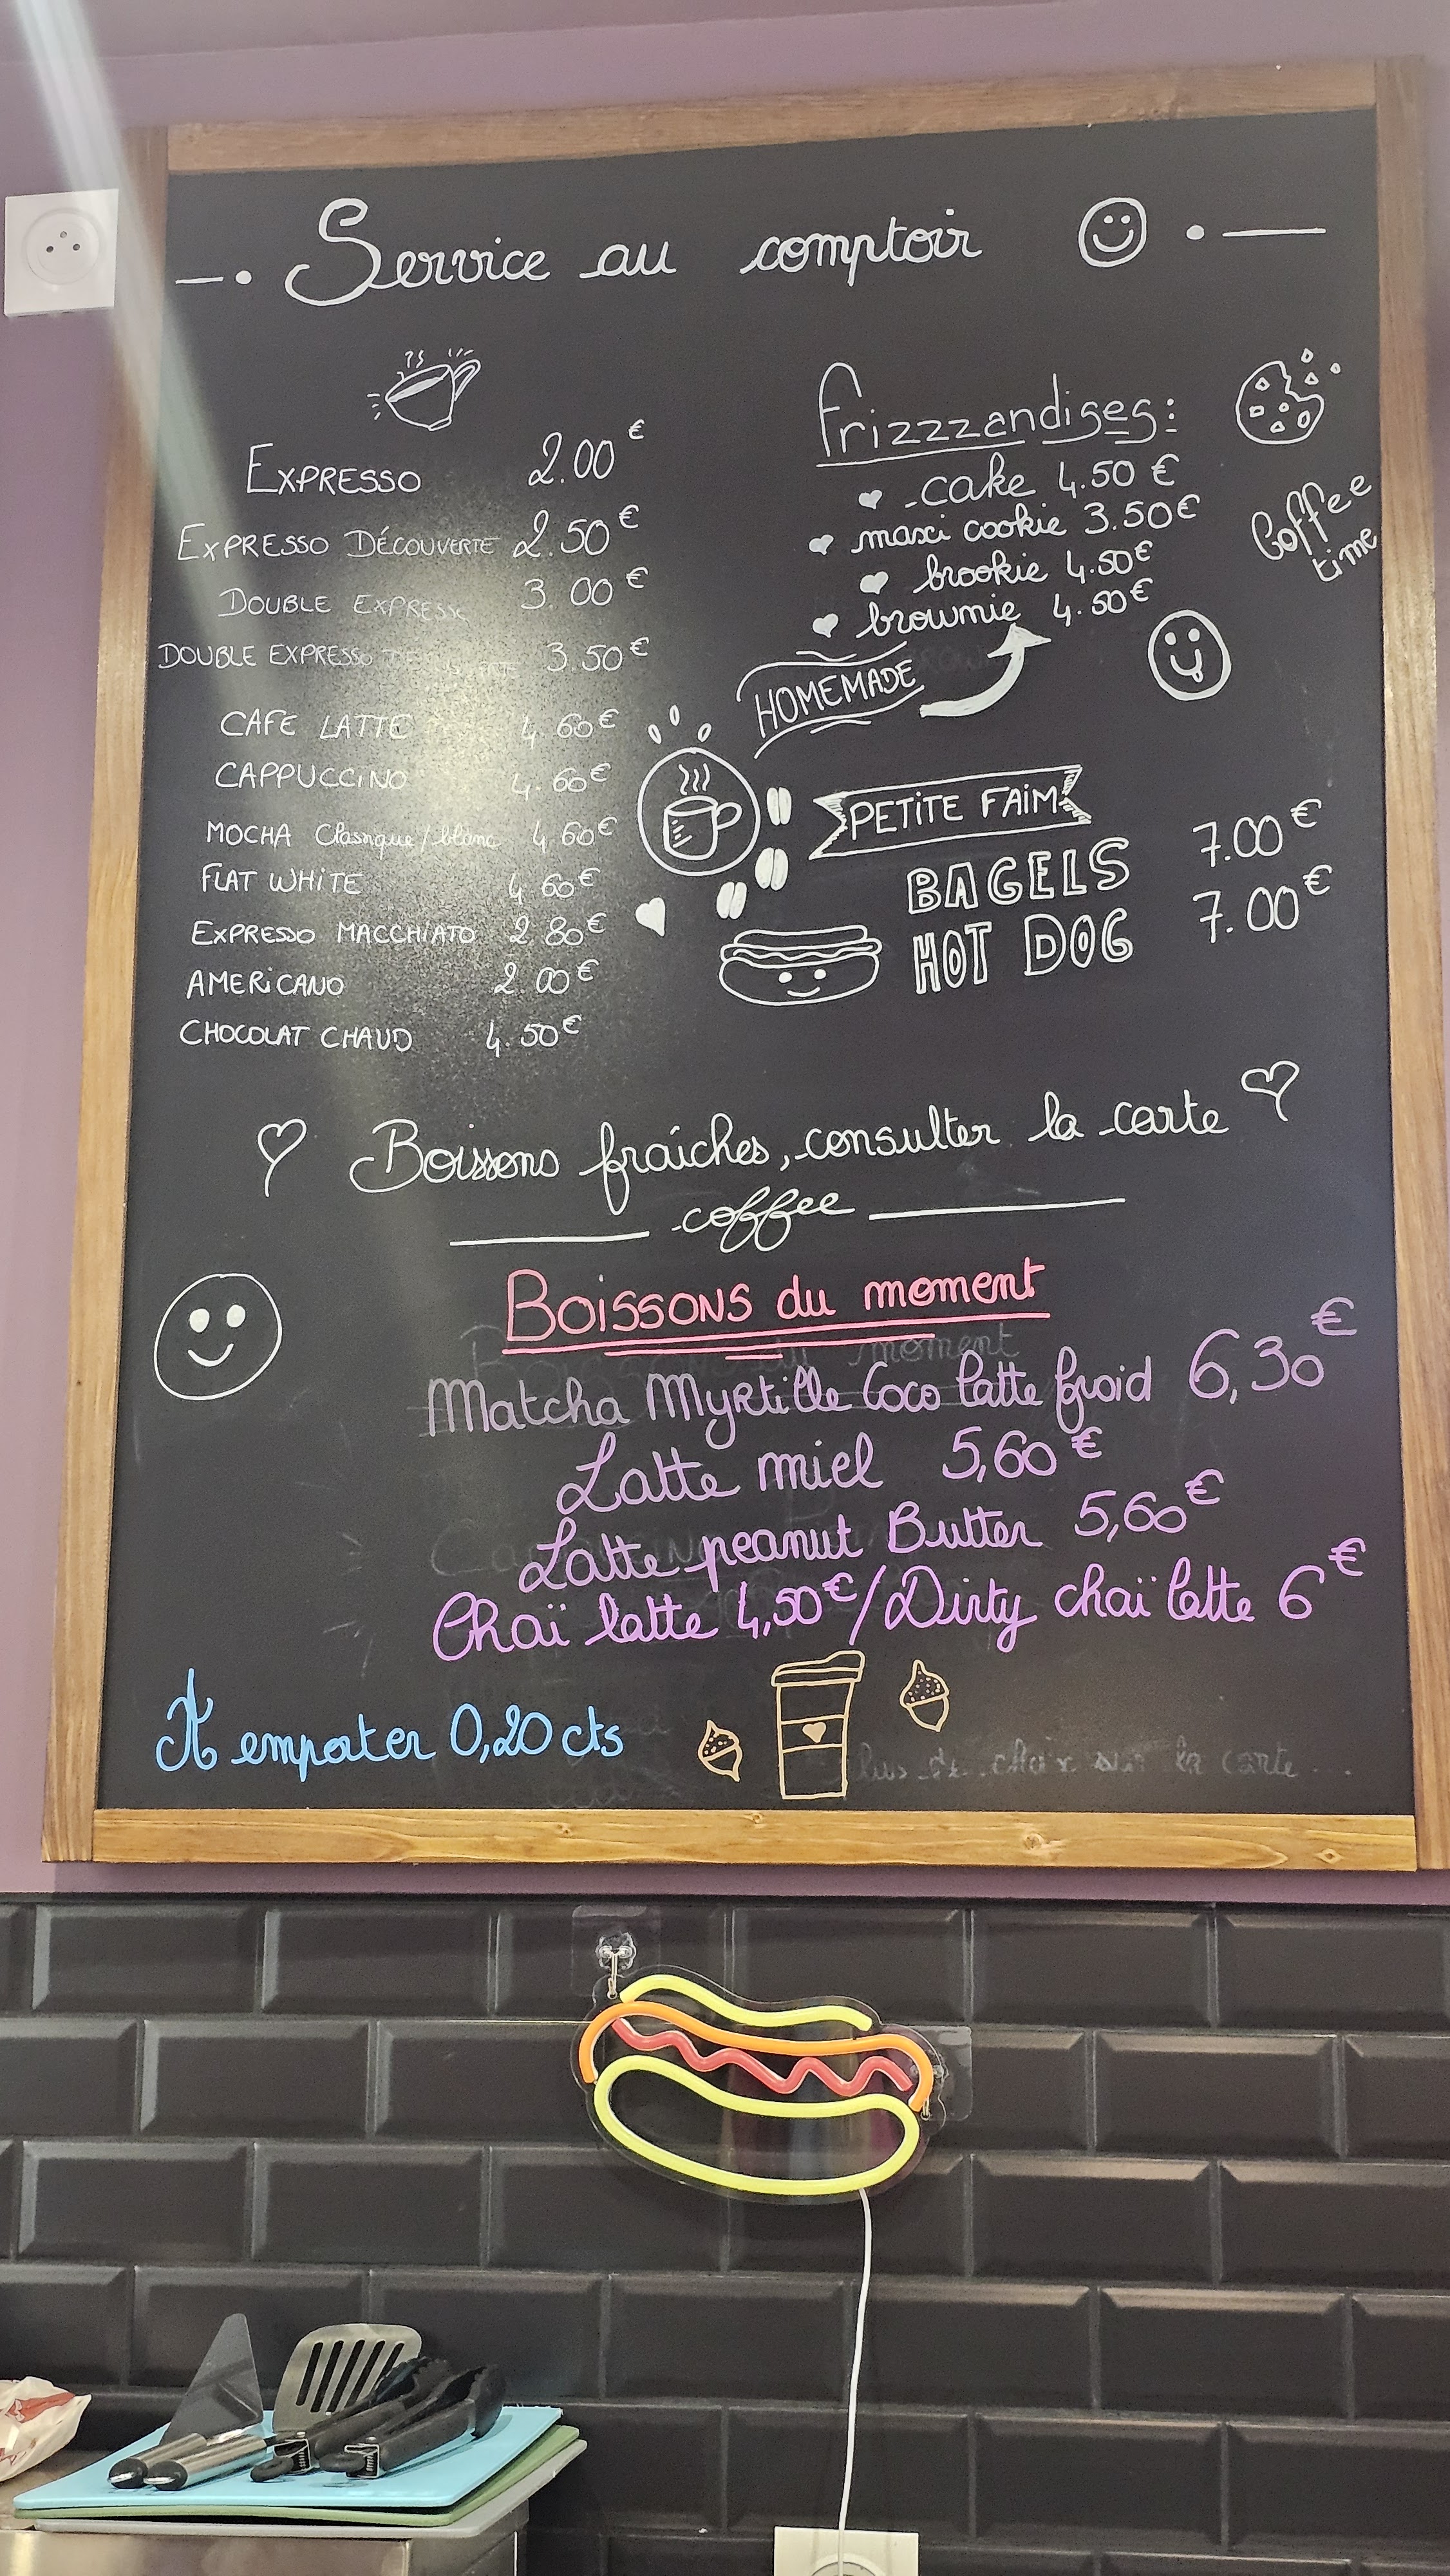 Service au comptoir
EXPRESSO 2.00€
EXPRESSO DÉCOUVERTE 2.50€
DOUBLE EXPRESSO 3.00€
DOUBLE EXPRESSO DÉCOUVERTE 3.50€
CAFE LATTE 4.60€
CAPPUCCINO 4.60€
MOCHA Classique/blanc 4.60€
FLAT WHITE 4.60€
EXPRESSO MACCHIATO 2.80€
AMERICANO 2.00€
CHOCOLAT CHAUD 4.50€
frizzzandises:
cake 4.50€
maxi cookie 3.50€
brookie 4.50€
brownie 4.50€
Coffee
time
HOMEMADE
PETITE FAIM
BAGELS 7.00€
HOT DOG 7.00€
Boissons fraîches, consulter la carte
coffee
BOISSONS du moment
Matcha Myrtille Coco latte froid 6,30€
Latte miel 5,60€
Latte peanut Butter 5,60€
Chaï latte 4,50€/Dirty chaï latte 6€
A emporter 0,20cts
Plus de choix sur la carte...